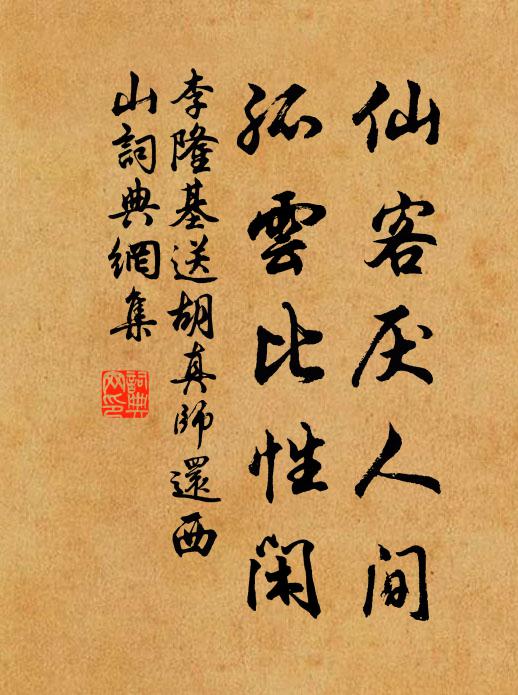 仙客厌人间
孤雲比性闲
李隆基送胡真師還西
山詞典網集
詞典
网印